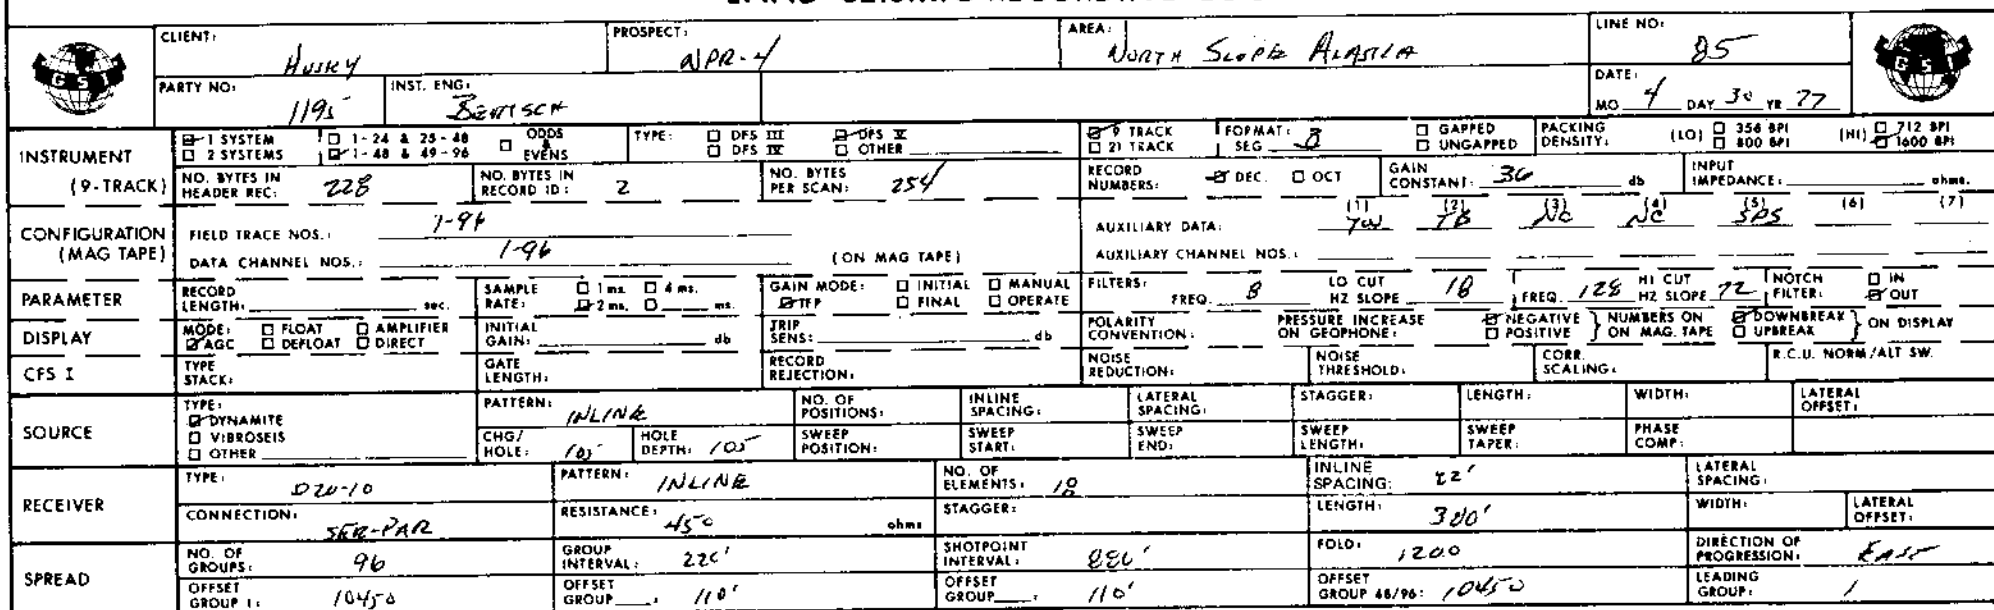 CLIENT: Husky PROSPECT: NPR-4 AREA: NORTH SLOPE ALASKA LINE NO: 85
GSI
PARTY NO: 1195 INST. ENG: DATE: MO 4 DAY 30 YR 77
INSTRUMENT (9-TRACK)
☑ 1 SYSTEM ☐ 1-24 & 25-48 ☐ ODDS & EVENS TYPE: ☐ DFS III ☑ DFS V ☑ 9 TRACK FORMAT: SEG B ☐ GAPPED PACKING DENSITY: (LO) ☐ 356 BPI (HI) ☐ 712 BPI
☐ 2 SYSTEMS ☑ 1-48 & 49-96 ☐ DFS IV ☐ OTHER ☐ 21 TRACK ☐ UNGAPPED ☐ 800 BPI ☑ 1600 BPI
NO. BYTES IN HEADER REC: 228 NO. BYTES IN RECORD ID: 2 NO. BYTES PER SCAN: 254 RECORD NUMBERS: ☑ DEC. ☐ OCT GAIN CONSTANT: 36 db INPUT IMPEDANCE: ohms.
CONFIGURATION (MAG TAPE)
FIELD TRACE NOS.: 1-96 AUXILIARY DATA: (1) TW (2) TB (3) NC (4) NC (5) SPS (6) (7)
DATA CHANNEL NOS.: 1-96 (ON MAG TAPE) AUXILIARY CHANNEL NOS.:
PARAMETER RECORD LENGTH: sec. SAMPLE RATE: ☐ 1 ms. ☐ 4 ms. ☑ 2 ms. ☐ ms. GAIN MODE: ☐ INITIAL ☐ MANUAL ☑ IFP ☐ FINAL ☐ OPERATE FILTERS: FREQ. 8 LO CUT HZ SLOPE 18 FREQ. 128 HI CUT HZ SLOPE 72 NOTCH FILTER: ☐ IN ☑ OUT
DISPLAY MODE: ☐ FLOAT ☐ AMPLIFIER ☑ AGC ☐ DEFLOAT ☐ DIRECT INITIAL GAIN: db TRIP SENS: db POLARITY CONVENTION: PRESSURE INCREASE ON GEOPHONE: ☑ NEGATIVE ☐ POSITIVE } NUMBERS ON ON MAG. TAPE ☑ DOWNBREAK ☐ UPBREAK } ON DISPLAY
CFS I TYPE STACK: GATE LENGTH: RECORD REJECTION: NOISE REDUCTION: NOISE THRESHOLD: CORR. SCALING: R.C.U. NORM/ALT SW.
SOURCE
TYPE: ☑ DYNAMITE ☐ VIBROSEIS ☐ OTHER PATTERN: INLINE NO. OF POSITIONS: INLINE SPACING: LATERAL SPACING: STAGGER: LENGTH: WIDTH: LATERAL OFFSET:
CHG/HOLE: 105 HOLE DEPTH: 105 SWEEP POSITION: SWEEP START: SWEEP END: SWEEP LENGTH: SWEEP TAPER: PHASE COMP:
RECEIVER
TYPE: D20-10 PATTERN: INLINE NO. OF ELEMENTS: 18 INLINE SPACING: 22' LATERAL SPACING:
CONNECTION: SER-PAR RESISTANCE: 450 ohms STAGGER: LENGTH: 380' WIDTH: LATERAL OFFSET:
SPREAD
NO. OF GROUPS: 96 GROUP INTERVAL: 220' SHOTPOINT INTERVAL: 880' FOLD: 1200 DIRECTION OF PROGRESSION: EAST
OFFSET GROUP 1: 10450 OFFSET GROUP : 110' OFFSET GROUP : 110' OFFSET GROUP 48/96: 10450 LEADING GROUP: 1